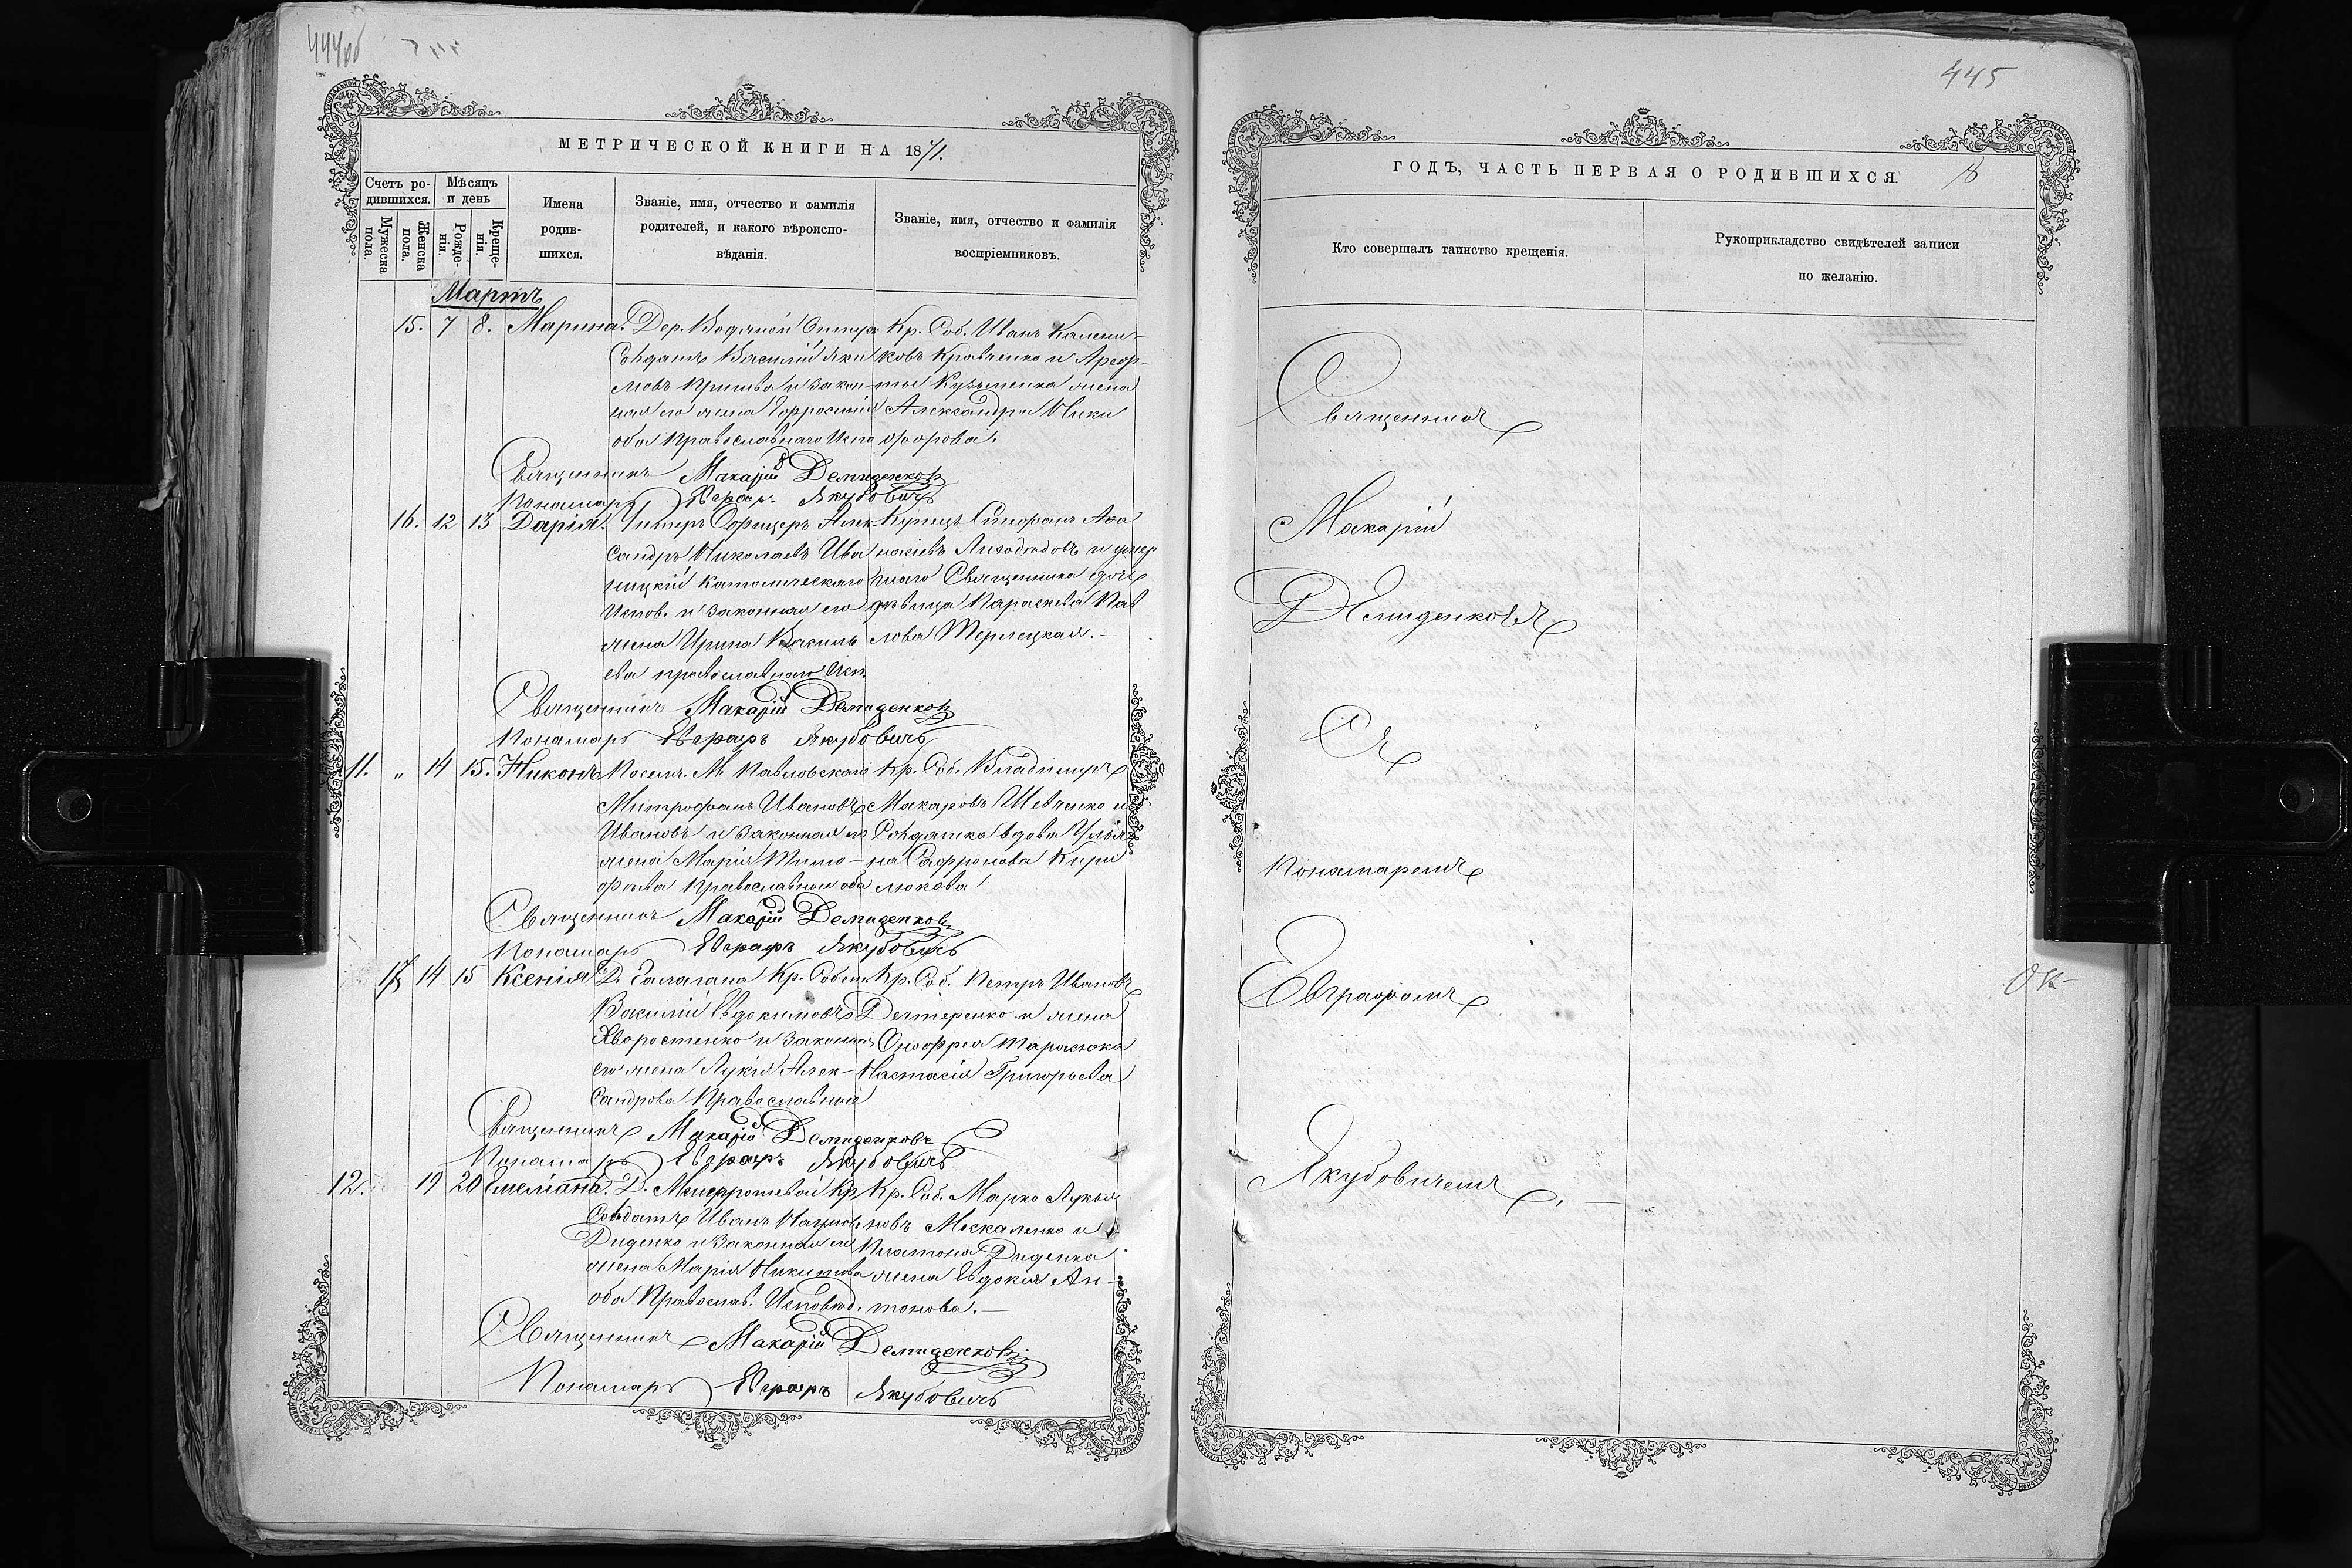 444об
МЕТРИЧЕСКОЙ КНИГИ НА 1871.
Счетъ ро-
дившихся.
Мѣсяцъ
и день
Мужеска
пола.
Женска
пола.
Рожде-
нія.
Креще-
нія.
Имена
родив-
шихся.
Званіе, имя, отчество и фамилія
родителей, и какого вѣроиспо-
вѣданія.
Званіе, имя, отчество и фамилія
воспріемниковъ.
Мартъ
15. 7 8. Марина. Дер. Водяной
Солдатъ Василій Яки
мовъ и закон-
ная его жена
оба Православнаго
Кр. Соб. Иванъ
ковъ Кравченко и
Кузьменка жена
Александра Ники
форова.
Священникъ Макарій Демиденковъ
Пономарь Евграфъ Якубовичъ
16. 12 13 Дарія. Унтеръ Офицеръ Алек
сандръ Николаевъ Ива
ницкій Католическаго
Испов. и законная его
жена Ирина Василь
ева православнаго Исп.
Купецъ Аѳа
насіевъ и умер
шаго Священника дочь
дѣвица Параскева Пав
лова Терлецкая.—
Священникъ Макарій Демиденковъ
Пономарь Евграфъ Якубовичъ
11. „ 14 15. Никонъ Посел. М. Павловскаго
Митрофанъ Ивановъ
Ивановъ и законная его
жена Марія Тимо-
фѣева Православные оба
Кр. Соб. Владимиръ
Макаровъ Шевченко и
Солдатка вдова Улья
на Софронова Кири
люкова
Священникъ Макарій Демиденковъ
Пономарь Евграфъ Якубовичъ
17 14 15 Ксенія Д. Галагана Кр. Собств.
Василій Евдокимовъ
Хворостенко и законная
его жена Лукія Алек-
сандрова Православные
Кр. Соб. Петръ Ивановъ
Дегтеренко и жена
Онофрея Тарасюка
Настасія Григорьева
Священникъ Макарій Демиденковъ
Пономарь Евграфъ Якубовичъ
12. 19 20 Емеліана. Д.
Солдатъ Иванъ Наумовъ
Диденко и законная его
жена Марія Никитова
оба Православ. Исповѣд.
Кр. Соб. Марко Лукья
новъ Москаленко и
Платона Диденка
жена Евдокія Ан-
тонова.—
Священникъ Макарій Демиденковъ
Пономарь Евграфъ Якубовичъ
445
ГОДЪ, ЧАСТЬ ПЕРВАЯ О РОДИВШИХСЯ.
Кто совершалъ таинство крещенія.
Рукоприкладство свидѣтелей записи
по желанію.
Священникъ
Макарій
Демиденковъ
Съ
Пономаремъ
Евграфомъ
Якубовичемъ.—